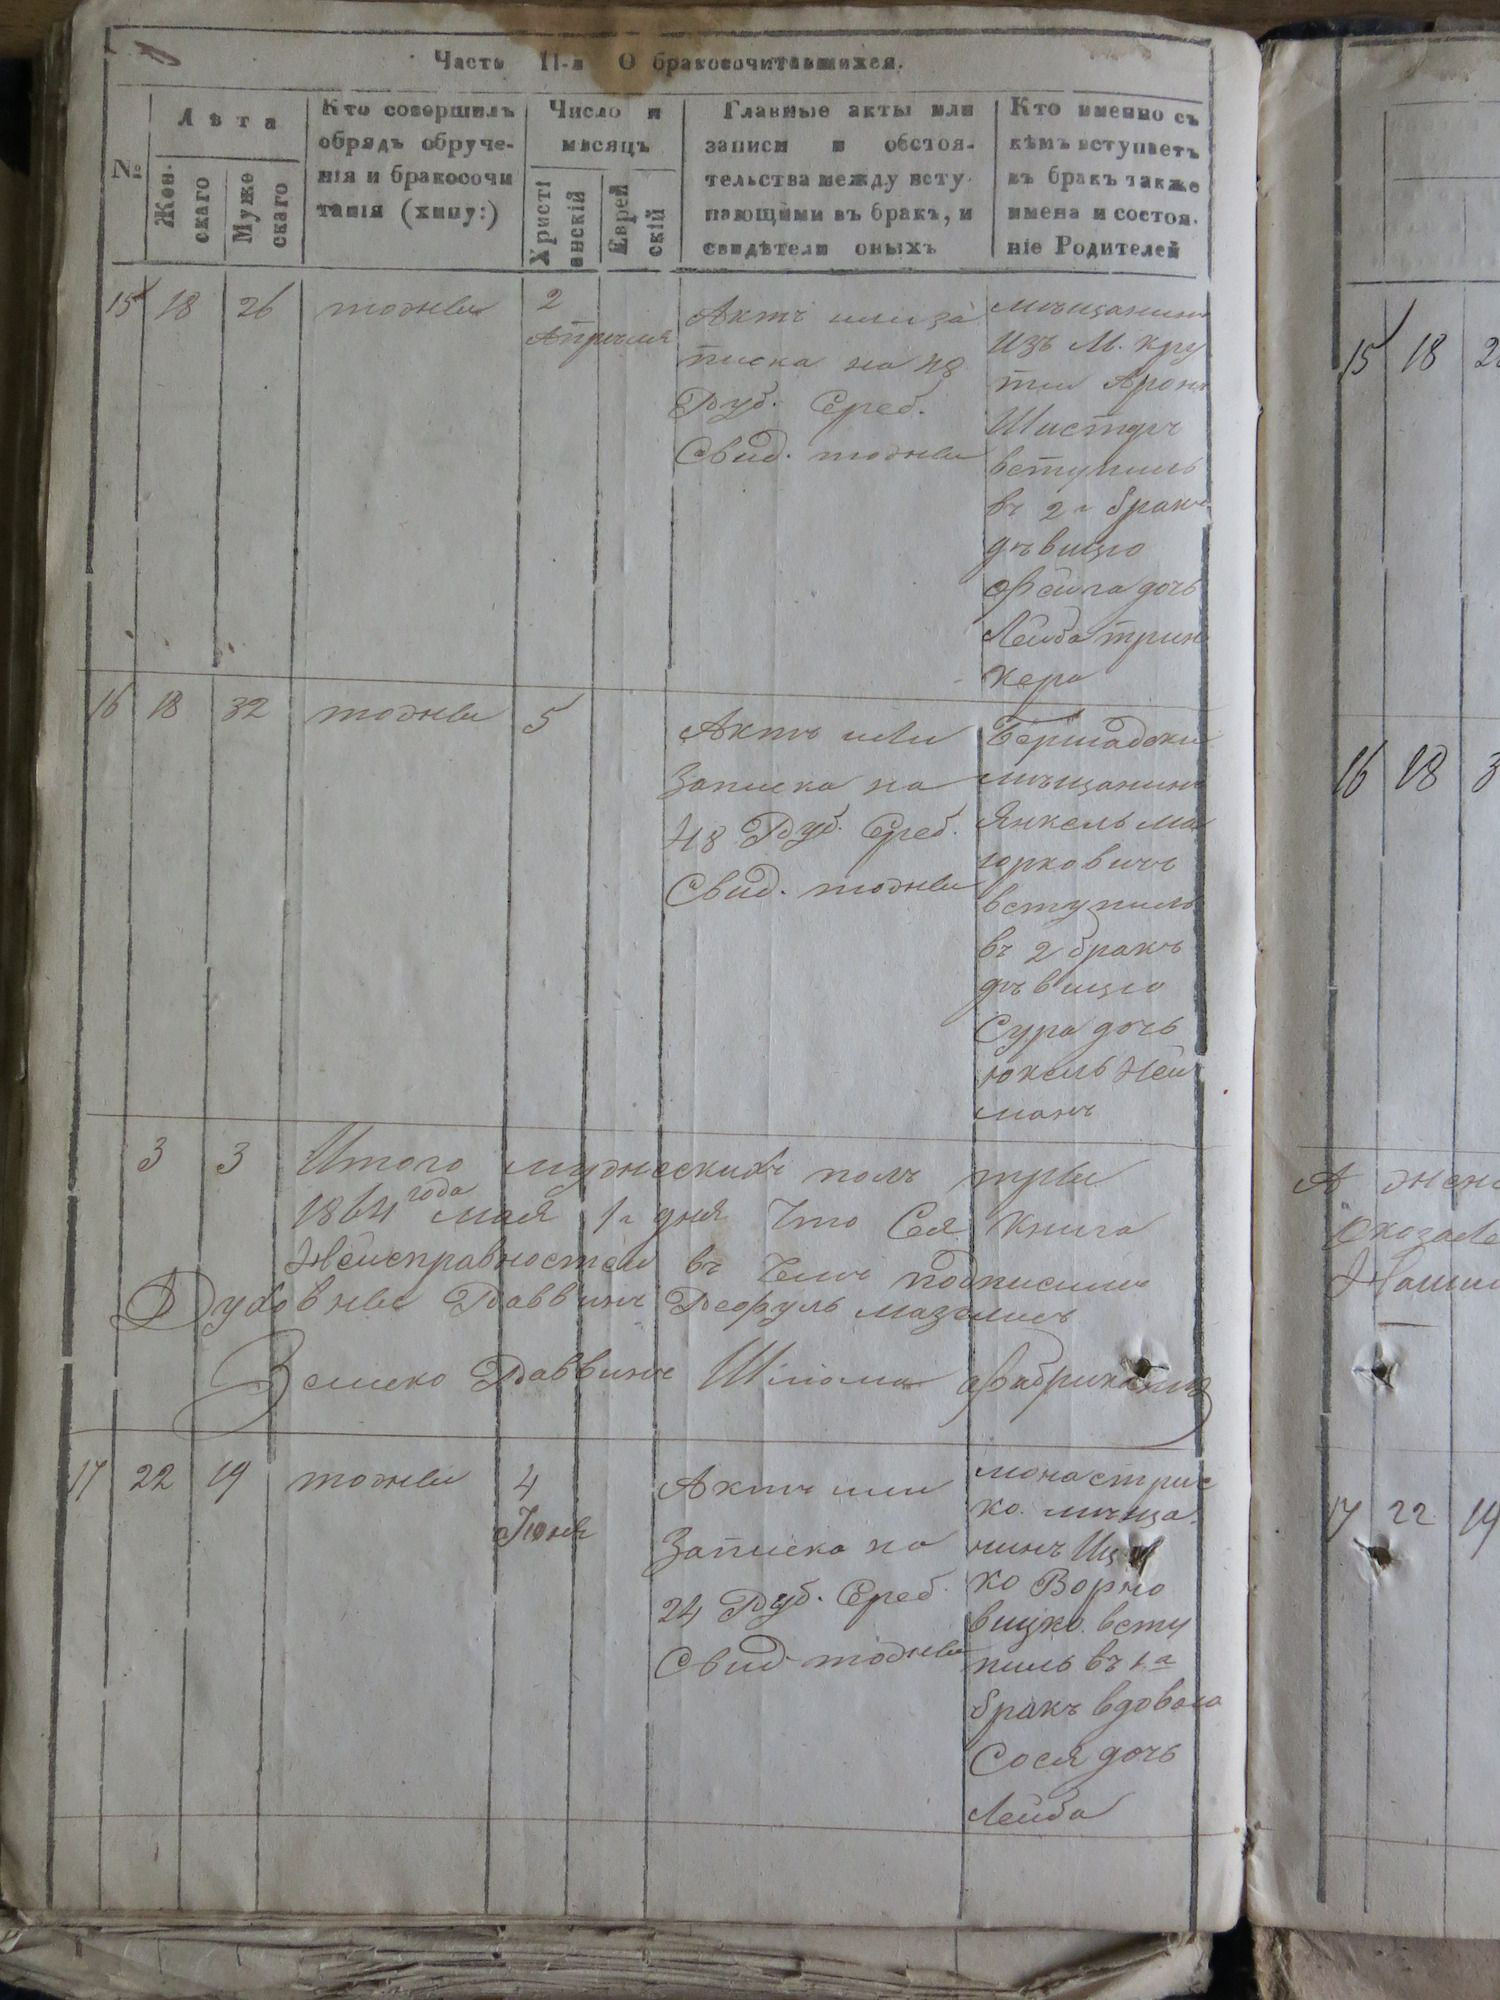 Часть II-я О бракосочитавшихся.
№
Лѣта
Жен-
скаго
Муже
скаго
Кто совершилъ
обрядъ обруче-
нія и бракосочи
танія (хипу:)
Число и
мѣсяцъ
Христі
анскій
Еврей
скій
Главные акты или
записи и обстоя-
тельства между всту-
пающими въ бракъ, и
свидѣтели оныхъ
Кто именно съ
кѣмъ вступаетъ
въ бракъ также
имена и состоя-
ніе Родителей
15 18 26 тодже 2
Апрѣля
Актъ или за
писка на 48
Руб. Среб.
Свид. тодже
мѣщанинъ
изъ М. Кру
тыи Аронъ
Шистеръ
вступилъ
въ 2й бракъ
дѣвицю
Фейга дочь
Лейба Трин
кера
16 18 32 тодже 5
Актъ или
Записка на
48 Руб. Среб.
Свид. тодже
Бершадски
мѣщанинъ
Янкель Ма
юрковичъ
вступилъ
въ 2 бракъ
дѣвицю
Сура дочь
Юкель Ней
манъ
3 3 Итого мужескихъ полъ три
1864 года мая 1го дня Что Сея Книга
Неисправностей въ Чемъ подписимъ
Духовные Раввинъ Рефуль Мазелисъ
Земско Раввинъ Шліома Фабрикантъ
17 22 19 тодже 4
Іюня
Актъ или
Записка на
24 Руб. Среб.
Свид тодже
монастрис
ко. мѣща
нинъ Иц
ко Ворно
вицко. всту
пилъ въ 1й
бракъ вдовою
Сося дочь
Лейба
15 18
16 18
А женс
Оказале
17 22 19